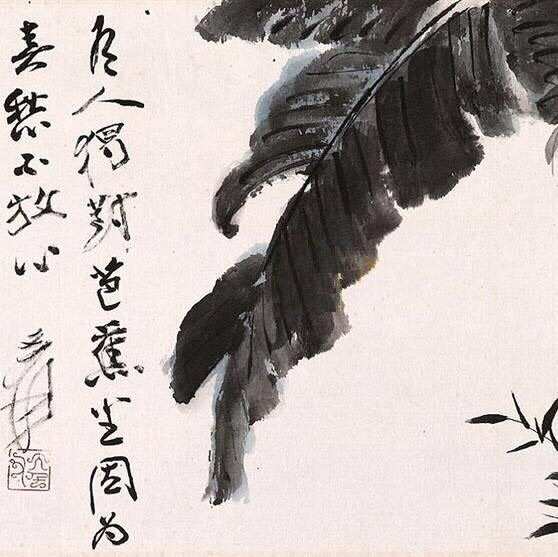 有人獨對芭蕉坐因為
春愁不放心